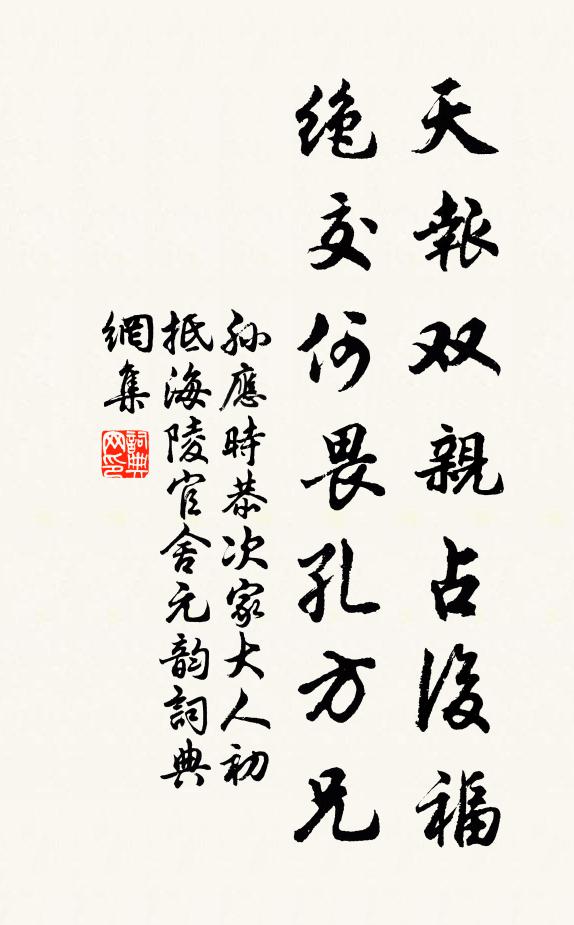 天報双親占後福
絶交何畏孔方兄
孫應時恭次家大人初
抵海陵官舍元韵詞典
網集
詞典网印